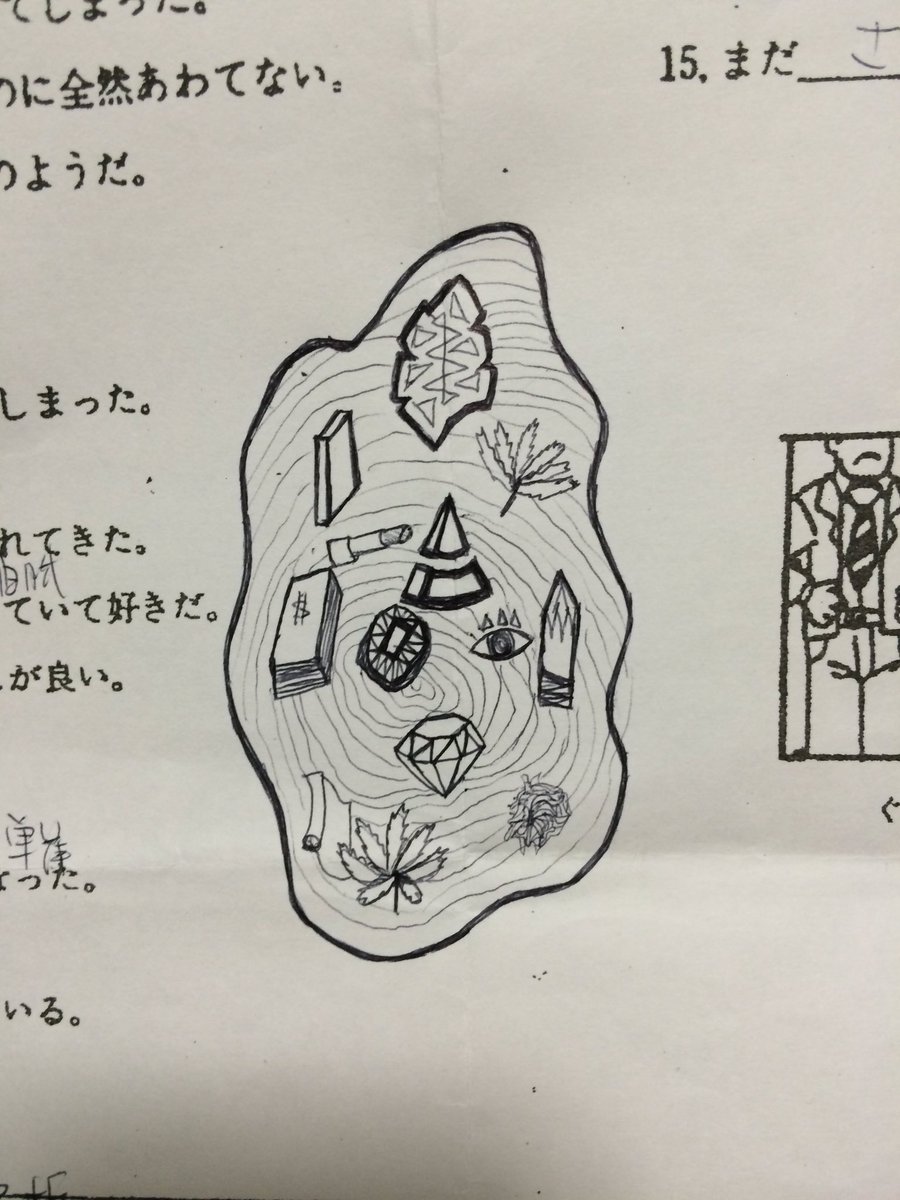 てしまった。
のに全然あわてない。
15. まだ
のようだ。
しまった。
れてきた。
ていて好きだ。
が良い。
$
なった。
いる。